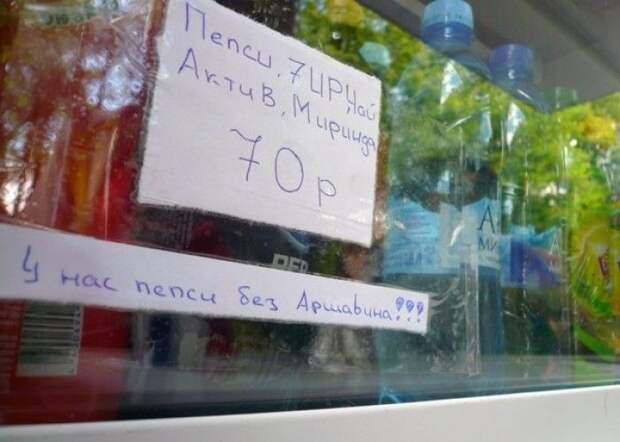 Пепси, 7UP, Чай
Актив, Миринда
70р
У нас пепси без Аршавина!!!